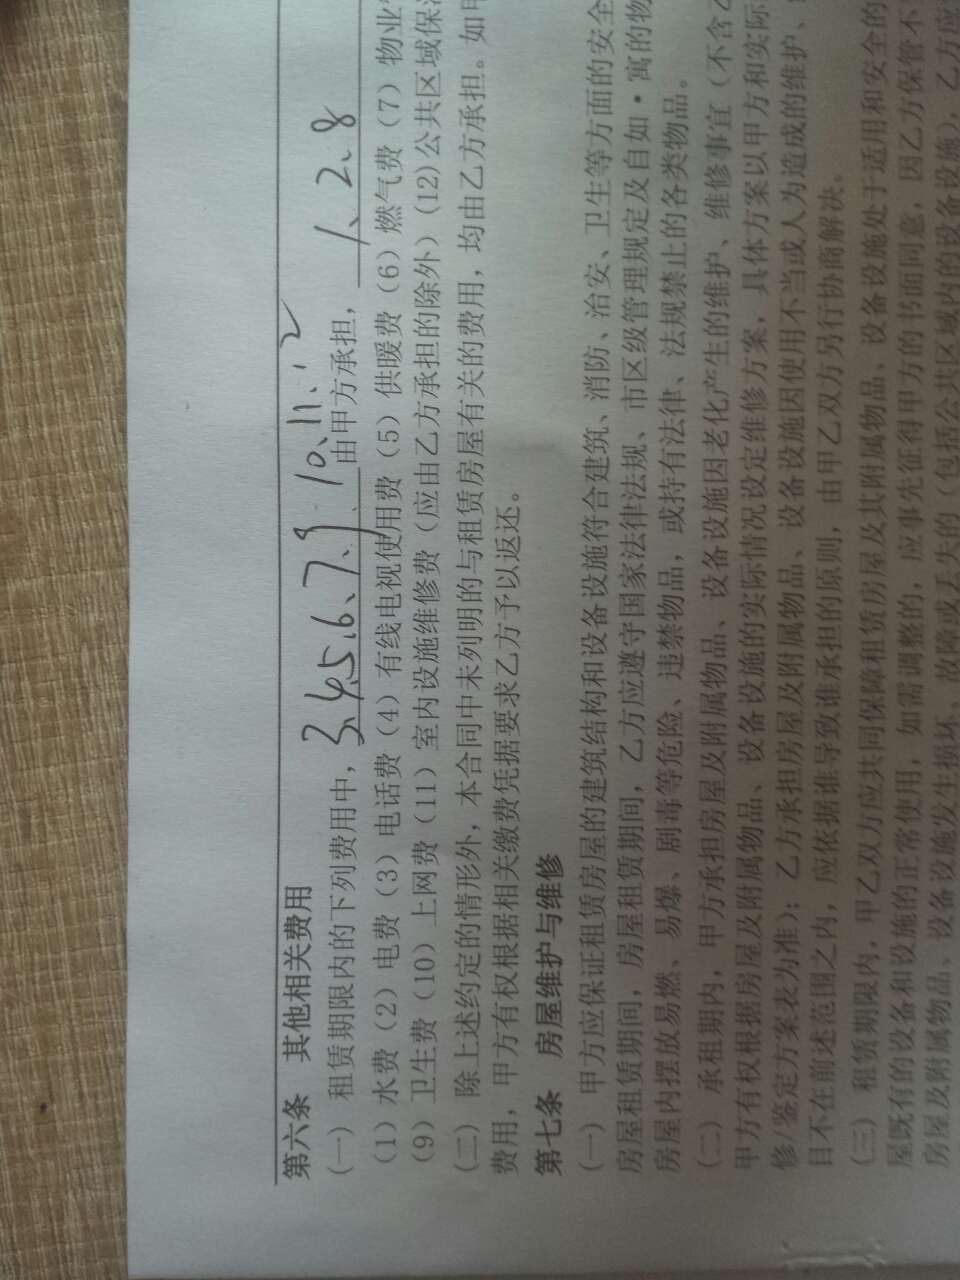 第六条 其他相关费用
(一) 租赁期限内的下列费用中，3、4、5、6、7、9、10、11、12 由甲方承担，1、2、8
(1) 水费 (2) 电费 (3) 电话费 (4) 有线电视使用费 (5) 供暖费 (6) 燃气费 (7) 物业
(9) 卫生费 (10) 上网费 (11) 室内设施维修费 (应由乙方承担的除外) (12) 公共区域保
(二) 除上述约定的情形外，本合同中未列明的与租赁房屋有关的费用，均由乙方承担。如
费用，甲方有权根据相关缴费凭据要求乙方予以返还。
第七条 房屋维护与维修
(一) 甲方应保证租赁房屋的建筑结构和设备设施符合建筑、消防、治安、卫生等方面的安全
房屋租赁期间，房屋租赁期间，乙方应遵守国家法律法规、市区级管理规定及自如·寓的物
房屋内摆放易燃、易爆、剧毒等危险、违禁物品，或持有法律、法规禁止的各类物品。
(二) 承租期内，甲方承担房屋及附属物品、设备设施因老化产生的维护、维修事宜 (不含
甲方有权根据房屋及附属物品、设备设施的实际情况设定维修方案，具体方案以甲方和实际
修/鉴定方案表为准)；乙方承担房屋及附属物品、设备设施因使用不当或人为造成的维护、
目不在前述范围之内，应依据谁导致谁承担的原则，由甲乙双方另行协商解决。
(三) 租赁期限内，甲乙双方应共同保障租赁房屋及其附属物品、设备设施处于适用和安全的
屋既有的设备和设施的正常使用，如需调整的，应事先征得甲方的书面同意，因乙方保管不
房屋及附属物品、设备设施发生损坏、故障或丢失的 (包括公共区域内的设备设施)，乙方应